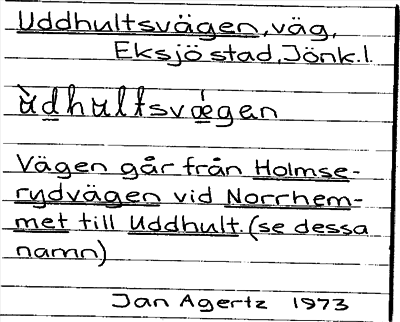 Uddhultsvägen, väg,
Eksjö stad, Jönk.l.
ùdhultsvǽgen
Vägen går från Holmse-
rydvägen vid Norrhem-
met till Uddhult. (se dessa
namn)
Jan Agertz 1973